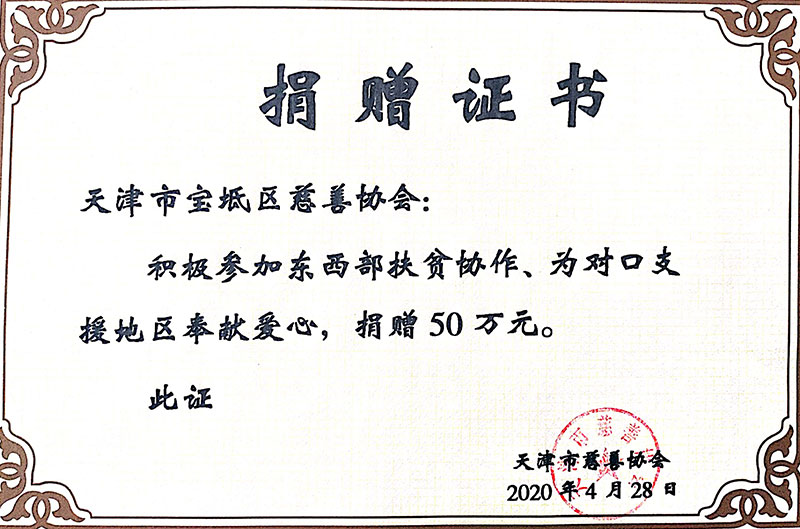 捐赠证书
天津市宝坻区慈善协会：
积极参加东西部扶贫协作、为对口支
援地区奉献爱心，捐赠50万元。
此证
天津市慈善协会
2020年4月28日